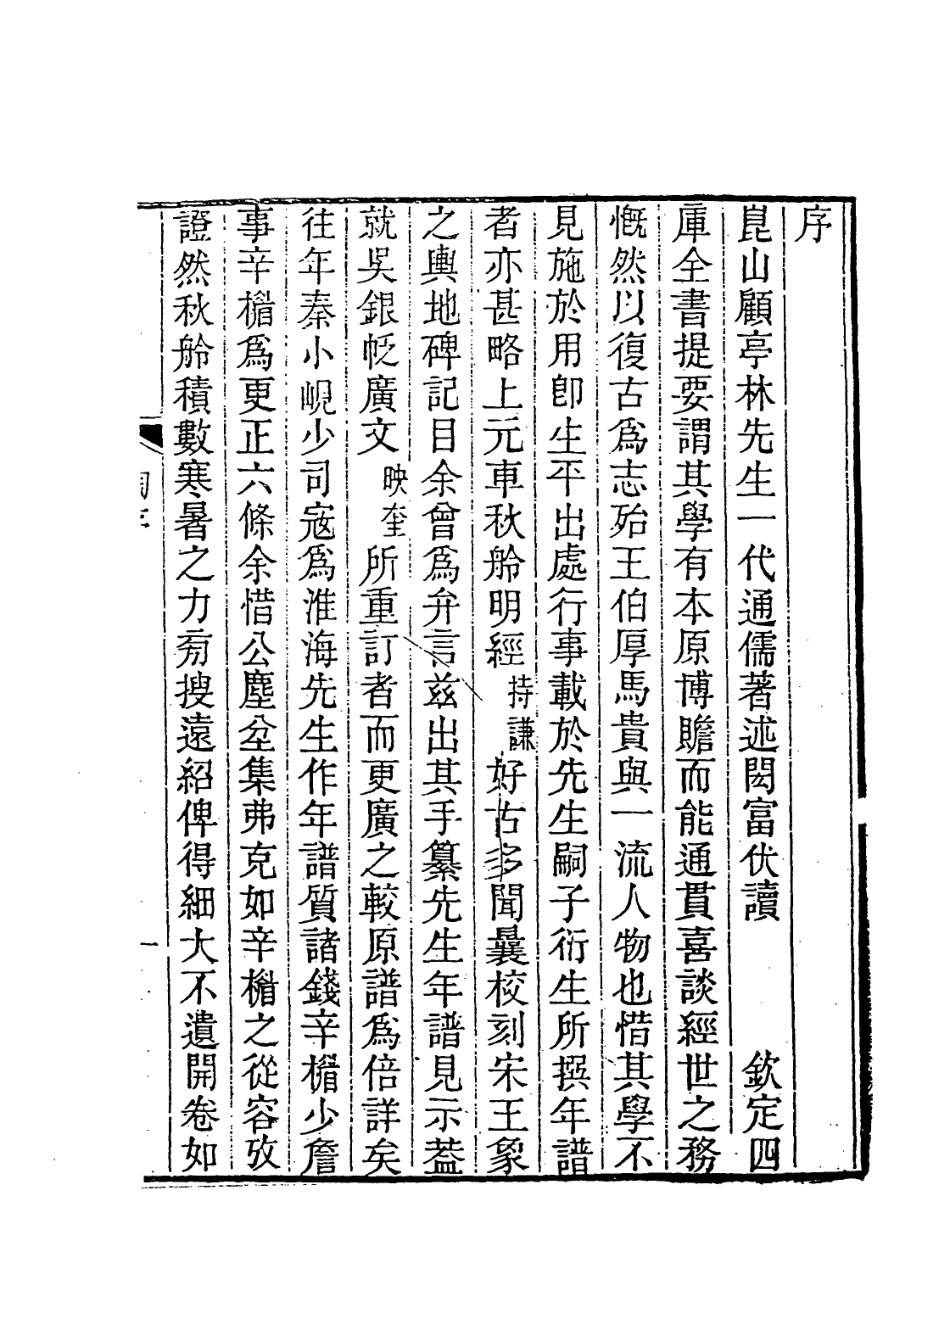 序
崑山顧亭林先生一代通儒著述閎富伏讀　欽定四
庫全書提要謂其學有本原博贍而能通貫喜談經世之務
慨然以復古爲志殆王伯厚馬貴與一流人物也惜其學不
見施於用卽生平出處行事載於先生嗣子衍生所撰年譜
者亦甚略上元車秋舲明經持謙好古多聞曩校刻宋王象
之輿地碑記目余曾爲弁言茲出其手纂先生年譜見示葢
就吳銀帆廣文映奎所重訂者而更廣之較原譜爲倍詳矣
往年秦小峴少司寇爲淮海先生作年譜質諸錢辛楣少詹
事辛楣爲更正六條余惜公塵坌集弗克如辛楣之從容攷
證然秋舲積數寒暑之力旁搜遠紹俾得細大不遺開卷如
一